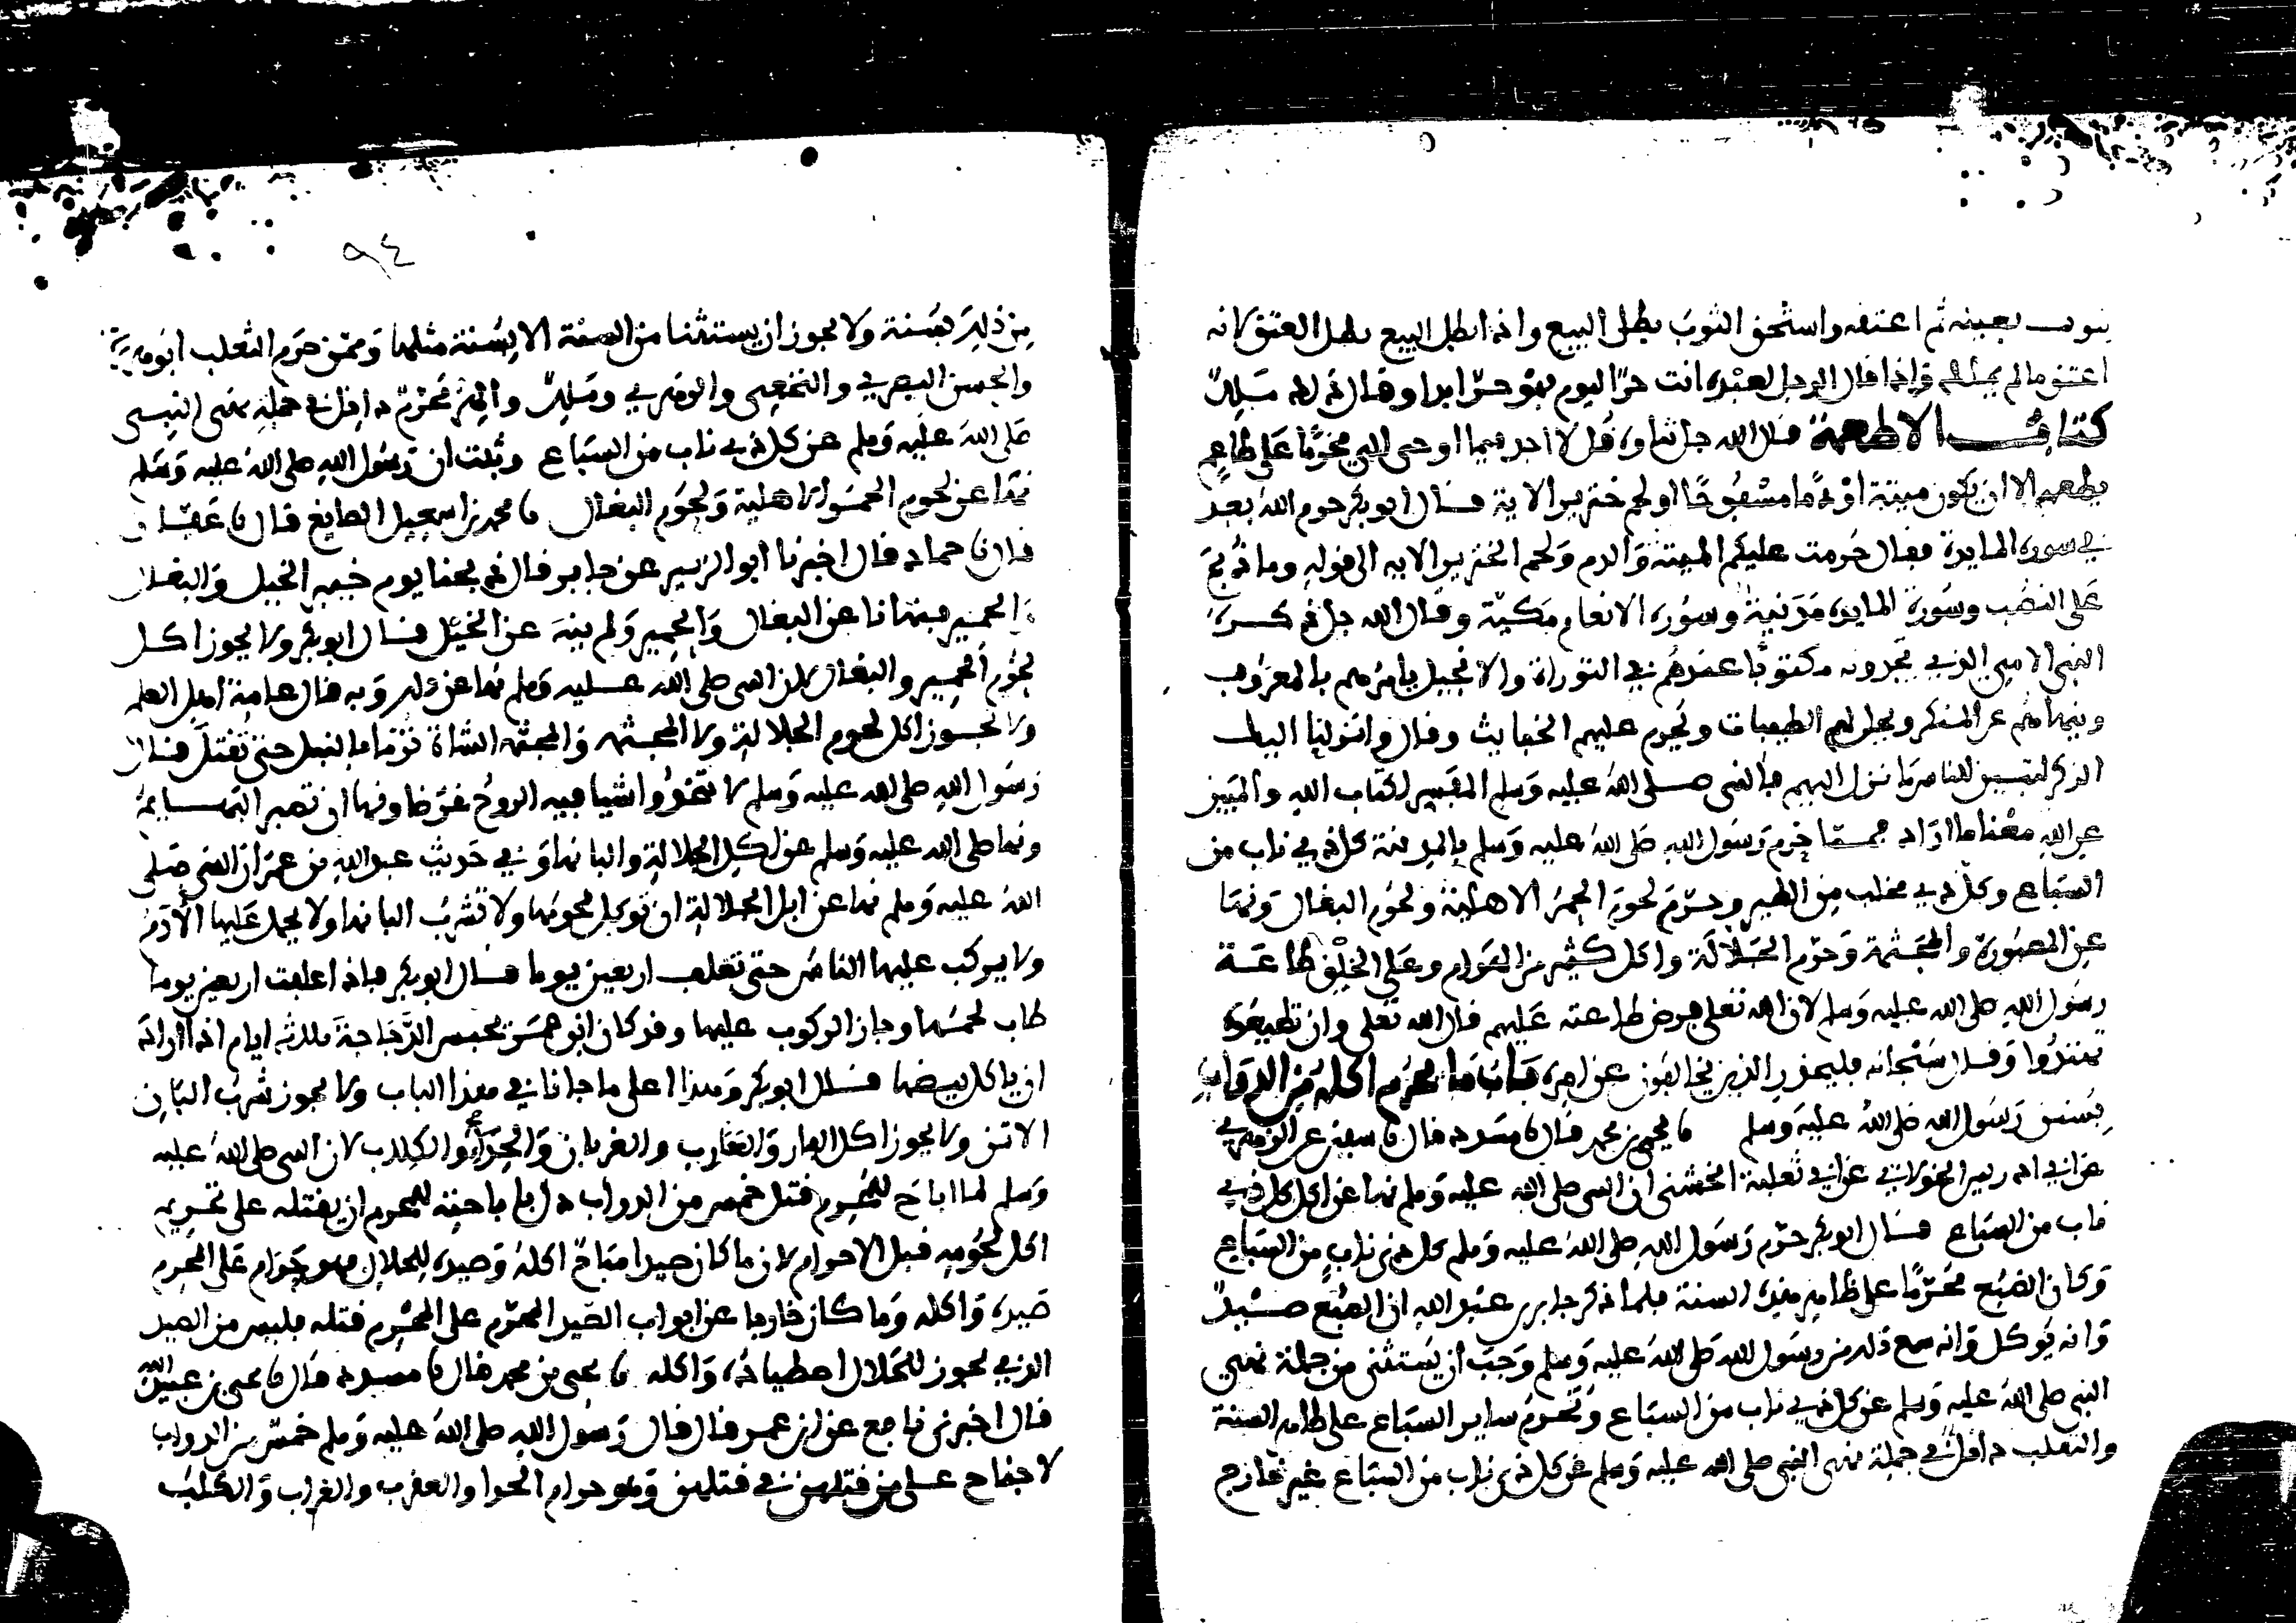 بثوب بعينه ثم اعتقه واستحق الثوب بطل البيع واذا بطل البيع بطل العتق لانه
اعتق مالم يملك واذا قال الرجل لعبده انت حرا اليوم فهو حر ابدا وقال ذلك ملك
كتاب الاطعمة قال الله جل ثناوه قل لا اجد فيما اوحى الي محرما على طاعم
يطعمه الا ان يكون ميتة او دما مسفوحا او لحم خنزير الاية قال ابو بكر حرم الله بعد
في سورة المايدة فقال حرمت عليكم الميتة والدم ولحم الخنزير الايه الى قوله وما ذبح
على النصب وسورة المايده مدنية وسوره الانعام مكية وقال الله جل ذكره
النبي الامي الذي يجدونه مكتوبا عندهم في التوراة والانجيل يامرهم بالمعروف
وينهاهم عن المنكر ويحل لهم الطيبات ويحرم عليهم الخبايث وقال وانزلنا اليك
الذكر لتبين للناس ما نزل اليهم فالنبي صلى الله عليه وسلم المفسر لكتاب الله والمبين
عن الله معنا ما اراد مما حرم رسول الله صلى الله عليه وسلم بالمدينة كل ذي ناب من
السباع وكل ذي مخلب من الطير وحرم لحوم الحمر الاهلية ولحوم البغال ونها
عن المصبورة والمجثمة وحرم الجلالة واكل كثير من الهوام وعلى الخلق طاعة
رسول الله صلى الله عليه وسلم لان الله تعلى فرض طاعته عليهم قال الله تعلى وان تطيعوه
تهتدوا وقال سبحانه فليحذر الذين يخالفون عن امره باب ما يحرم اكله من الدواب
بسنن رسول الله صلى الله عليه وسلم نا يحيى بن محمد قال نا مسدد قال نا سفين عن الزهري
عن ابي ادريس الخولاني عن ابي ثعلبة الخشني ان النبي صلى الله عليه وسلم نها عن اكل كل ذي
ناب من السباع قال ابو بكر حرم رسول الله صلى الله عليه وسلم كل ذي ناب من السباع
وكان الضبع محرما على ظاهر هذه السنة فلما ذكر جابر بن عبد الله ان الضبع صيد
وانه يوكل وانه سمع ذلك من رسول الله صلى الله عليه وسلم وجب ان يستثنى من جملة نهي
النبي صلى الله عليه وسلم عن كل ذي ناب من السباع وتحرم ساير السباع على ظاهر السنة
والثعلب داخل في جملة نهي النبي صلى الله عليه وسلم عن كل ذي ناب من السباع غير خارج
٩٤
من ذلك بسنة ولا يجوز ان يستثنا من السنة الا بسنة مثلها وممن حرم الثعلب ابو هريرة
والحسن البصري والنخعي والزهري وملك والهر محرم داخل في جملة نهي النبي
صلى الله عليه وسلم عن كل ذي ناب من السباع وثبت ان رسول الله صلى الله عليه وسلم
نها عن لحوم الحمر الاهلية ولحوم البغال نا محمد بن اسمعيل الصايغ قال نا عفان
قال نا حماد قال اخبرنا ابو الزبير عن جابر قال ذبحنا يوم خيبر الخيل والبغال
والحمير فنهانا عن البغال والحمير ولم ينه عن الخيل قال ابو بكر ولا يجوز اكل
لحوم الحمير والبغال لان النبي صلى الله عليه وسلم نها عن ذلك وبه قال عامة اهل العلم
ولا يجوز اكل لحوم الجلالة ولا المجثمه والمجثمه الشاة ترما بالنبل حتى تقتل قال
رسول الله صلى الله عليه وسلم لا تتخذوا شيا فيه الروح غرضا ونها ان تصبر البهايم
ونها صلى الله عليه وسلم عن اكل الجلالة والبانها وفي حديث عبد الله بن عمر ان النبي صلى
الله عليه وسلم نها عن ابل الجلالة ان توكل لحومها ولا تشرب البانها ولا يحمل عليها الادم
ولا يركب عليها الناس حتى تعلف اربعين يوما قال ابو بكر فاذا علفت اربعين يوما
طاب لحمها وجاز الركوب عليها وقد كان ابن عمر يحبس الدجاجة ثلاثة ايام اذا اراد
ان ياكل بيضها قال ابو بكر وهذا اعلى ما جانا في هذا الباب ولا يجوز شرب البان
الاتن ولا يجوز اكل الفار والعقارب والغربان والحدا والكلاب لان النبي صلى الله عليه
وسلم لما اباح للمحرم قتل خمس من الدواب دل اباحته للمحرم ان يقتله على تحريم
اكل لحومه قبل الاحرام لان ما كان صيدا مباح اكله وصيده للحلال فهو حرام على المحرم
صيده واكله وما كان خارجا عن ابواب الصيد المحرم على المحرم قتله فليس من الصيد
الذي يجوز للحلال اصطياده واكله نا يحيى بن محمد قال نا مسدد قال نا يحيى عن عبيد الله
قال اخبرني نافع عن ابن عمر قال قال رسول الله صلى الله عليه وسلم خمس من الدواب
لا جناح على من قتلهن في قتلهن وهو حرام الحدا والعقرب والغراب والكلب